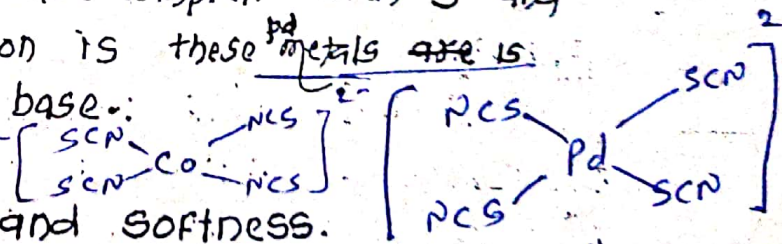 on is these pd metals is
base.:
[ SCN SCN Co NCS NCS ]2- [ NCS NCS Pd SCN SCN ]2
and softness.